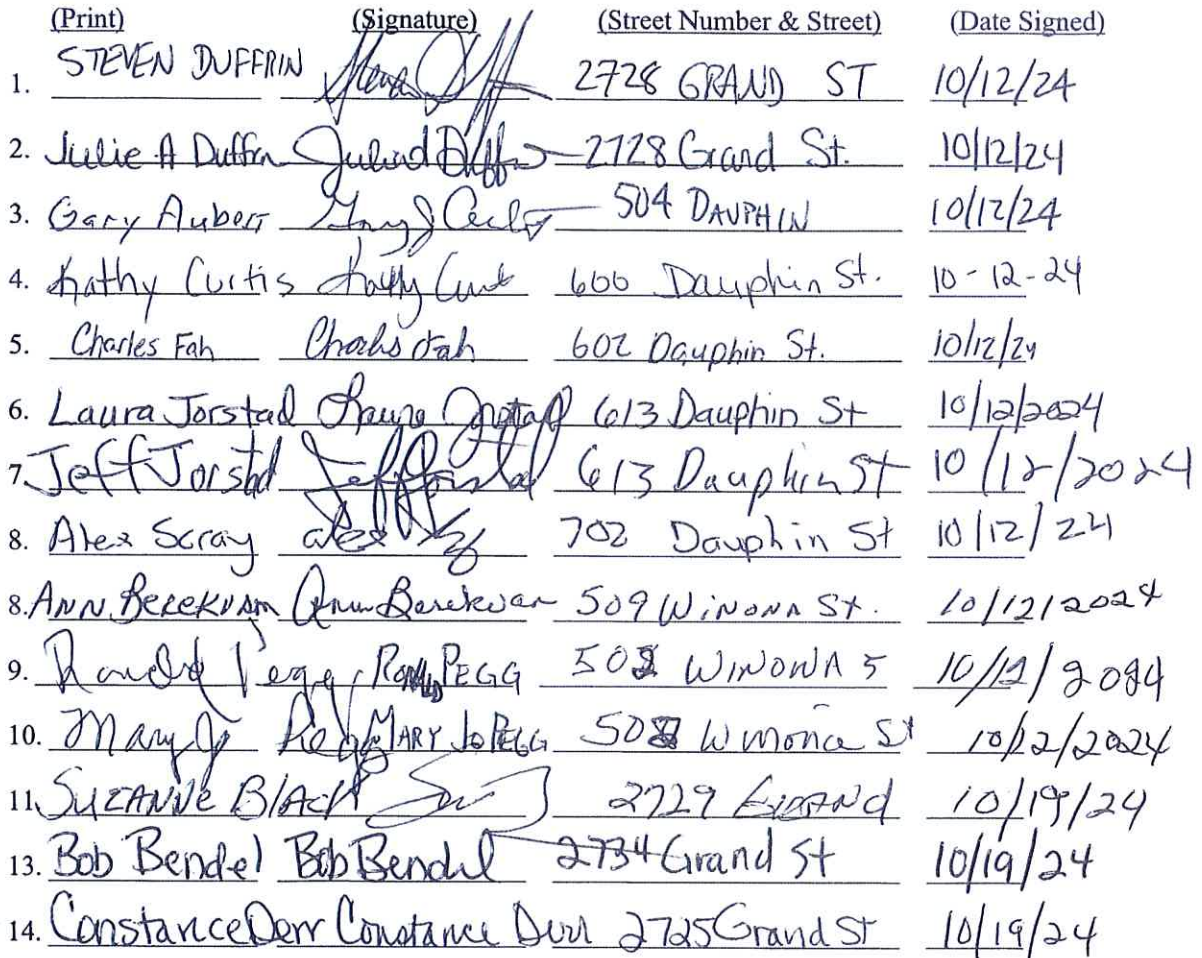 (Print) (Signature) (Street Number & Street) (Date Signed)
1. STEVEN DUFFRIN 2728 GRAND ST 10/12/24
2. Julie A Duffrin 2728 Grand St. 10/12/24
3. Gary Aubert 504 DAUPHIN 10/12/24
4. Kathy Curtis 600 Dauphin St. 10-12-24
5. Charles Fah Charles Fah 602 Dauphin St. 10/12/24
6. Laura Jorstad Laura Jorstad 613 Dauphin St 10/12/2024
7. Jeff Jorstad Jeff Jorstad 613 Dauphin St 10/12/2024
8. Alex Scray Alex 702 Dauphin St 10/12/24
8. ANN BEREKVAM Ann Berekvam 509 WINONA St. 10/12/2024
9. Ronald Pegg PEGG WINONA S 10/12/2024
10. Mary Jo Pegg MARY JO PEGG Winona St 10/12/2024
11. SUZANNE BLACK 2729 GRAND 10/19/24
13. Bob Bendel Bob Bendel 2734 Grand St 10/19/24
14. Constance Derr Constance Derr 2725 Grand St 10/19/24